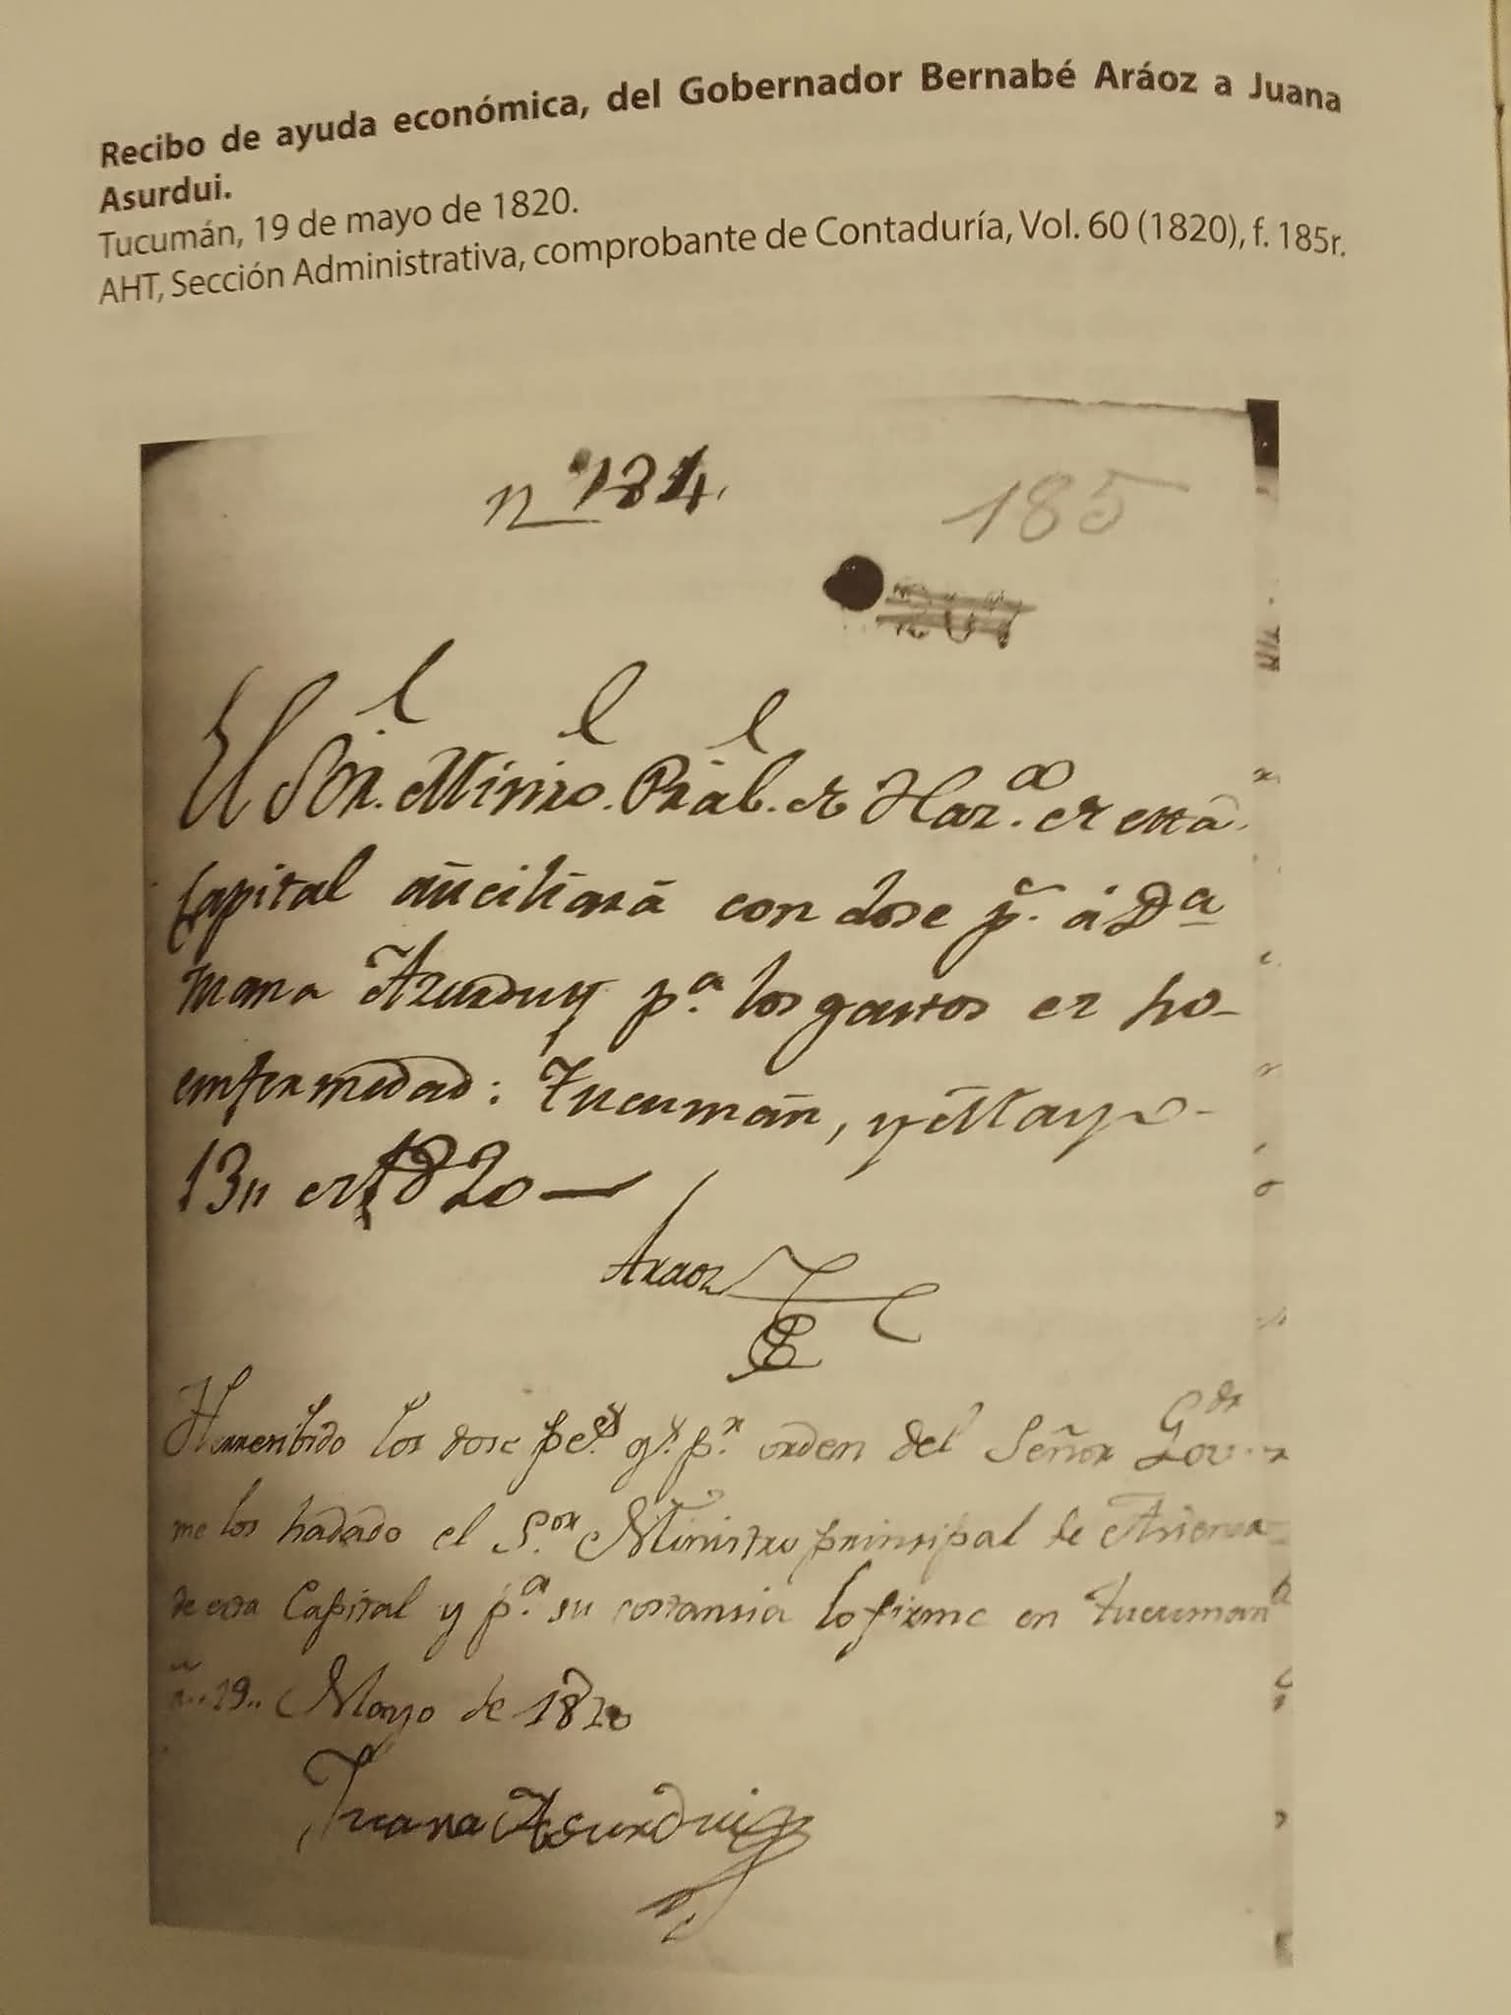 Recibo de ayuda económica, del Gobernador Bernabé Aráoz a Juana
Asurdui.
Tucumán, 19 de mayo de 1820.
AHT, Sección Administrativa, comprobante de Contaduría, Vol. 60 (1820), f. 185r.
nº 184.
185
El Sor. Minro. Pral. de Haz.da de esta
Capital auciliará con dose ps. á Da
Juana Azurduy pa. los gastos de
enfermedad: Tucumán, y Mayo
13,, de 1820
Araoz
los dose pes. qe. pr. orden del Señor Gov.
me los hadado el S.or Ministro prinsipal de
de esta Capital y pa. su costansia lo firme en Tucuman
19.. Mayo de 1820
Juana Asurdui